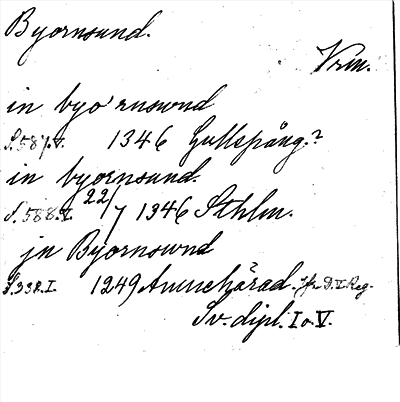 Byornsund.
Vrm.
in byo'rnswnd
S. 587. V. 1346 Gullspång.?
in byornsund.
S. 588. V. 22/7 1346 Sthlm.
jn Byornownd
S. 338. I. 1249 Amnehärad. Jfr D. V. Reg.
Sv. dipl. I o. V.